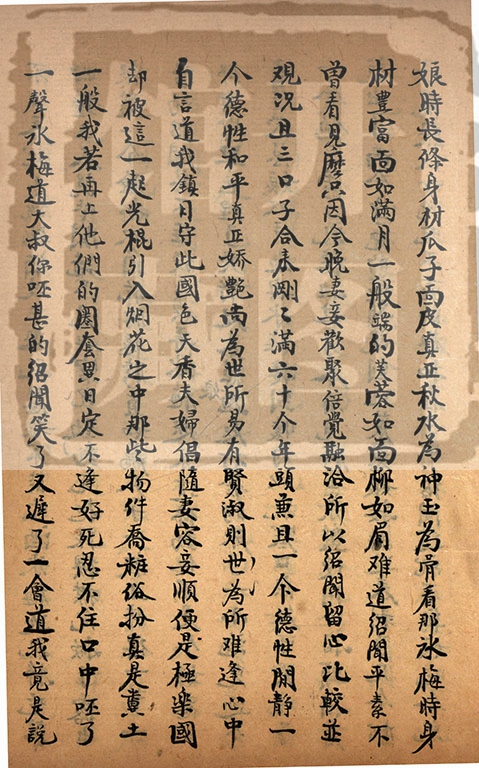 娘時長條身材瓜子面皮真正秋水為神玉為骨看那冰梅時身
材豊富面如滿月一般端的芙蓉如面柳如眉难道紹聞平素不
曾看見麽只因今晚妻妾歡聚倍覺融洽所以紹聞留心比較並
观况且三口子合来剛剛滿六十个年頭兼且一个德性閒靜一
个德性和平真正娇艷尚為世所易有賢淑則世為所难逢心中
自言道我鎮日守此國色天香夫婦倡隨妻容妾順便是極楽國
却被這一起光棍引入烟花之中那些物件喬粧俗扮真是糞土
一般我若再上他們的圈套異日定不逢好死忍不住口中呸了
一聲冰梅道大叔你呸甚的紹聞笑了又遲了一會道我竟是説